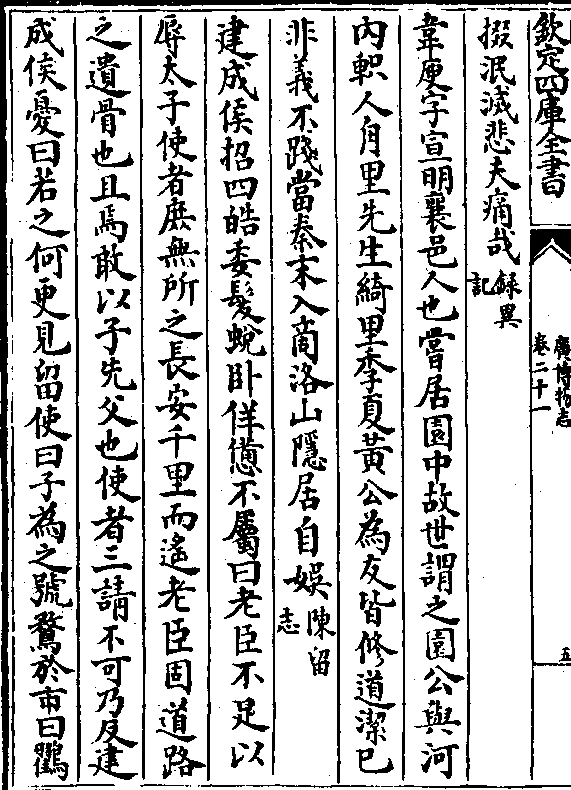 欽定四庫全書
廣博物志
卷二十一
五
掇泯滅悲夫痛哉錄異記
韋庾字宣明襄邑人也嘗居園中故世謂之園公與河
内軹人角里先生綺里季夏黃公為友皆修道潔已
非義不踐當秦末入商洛山隱居自娛陳留志
建成侯招四皓委髮蛻卧佯憊不屬曰老臣不足以
辱太子使者庶無所之長安千里而遙老臣固道路
之遺骨也且焉敢以子先父也使者三請不可乃反建
成侯憂曰若之何更見留使曰子為之號鶩於市曰鸛